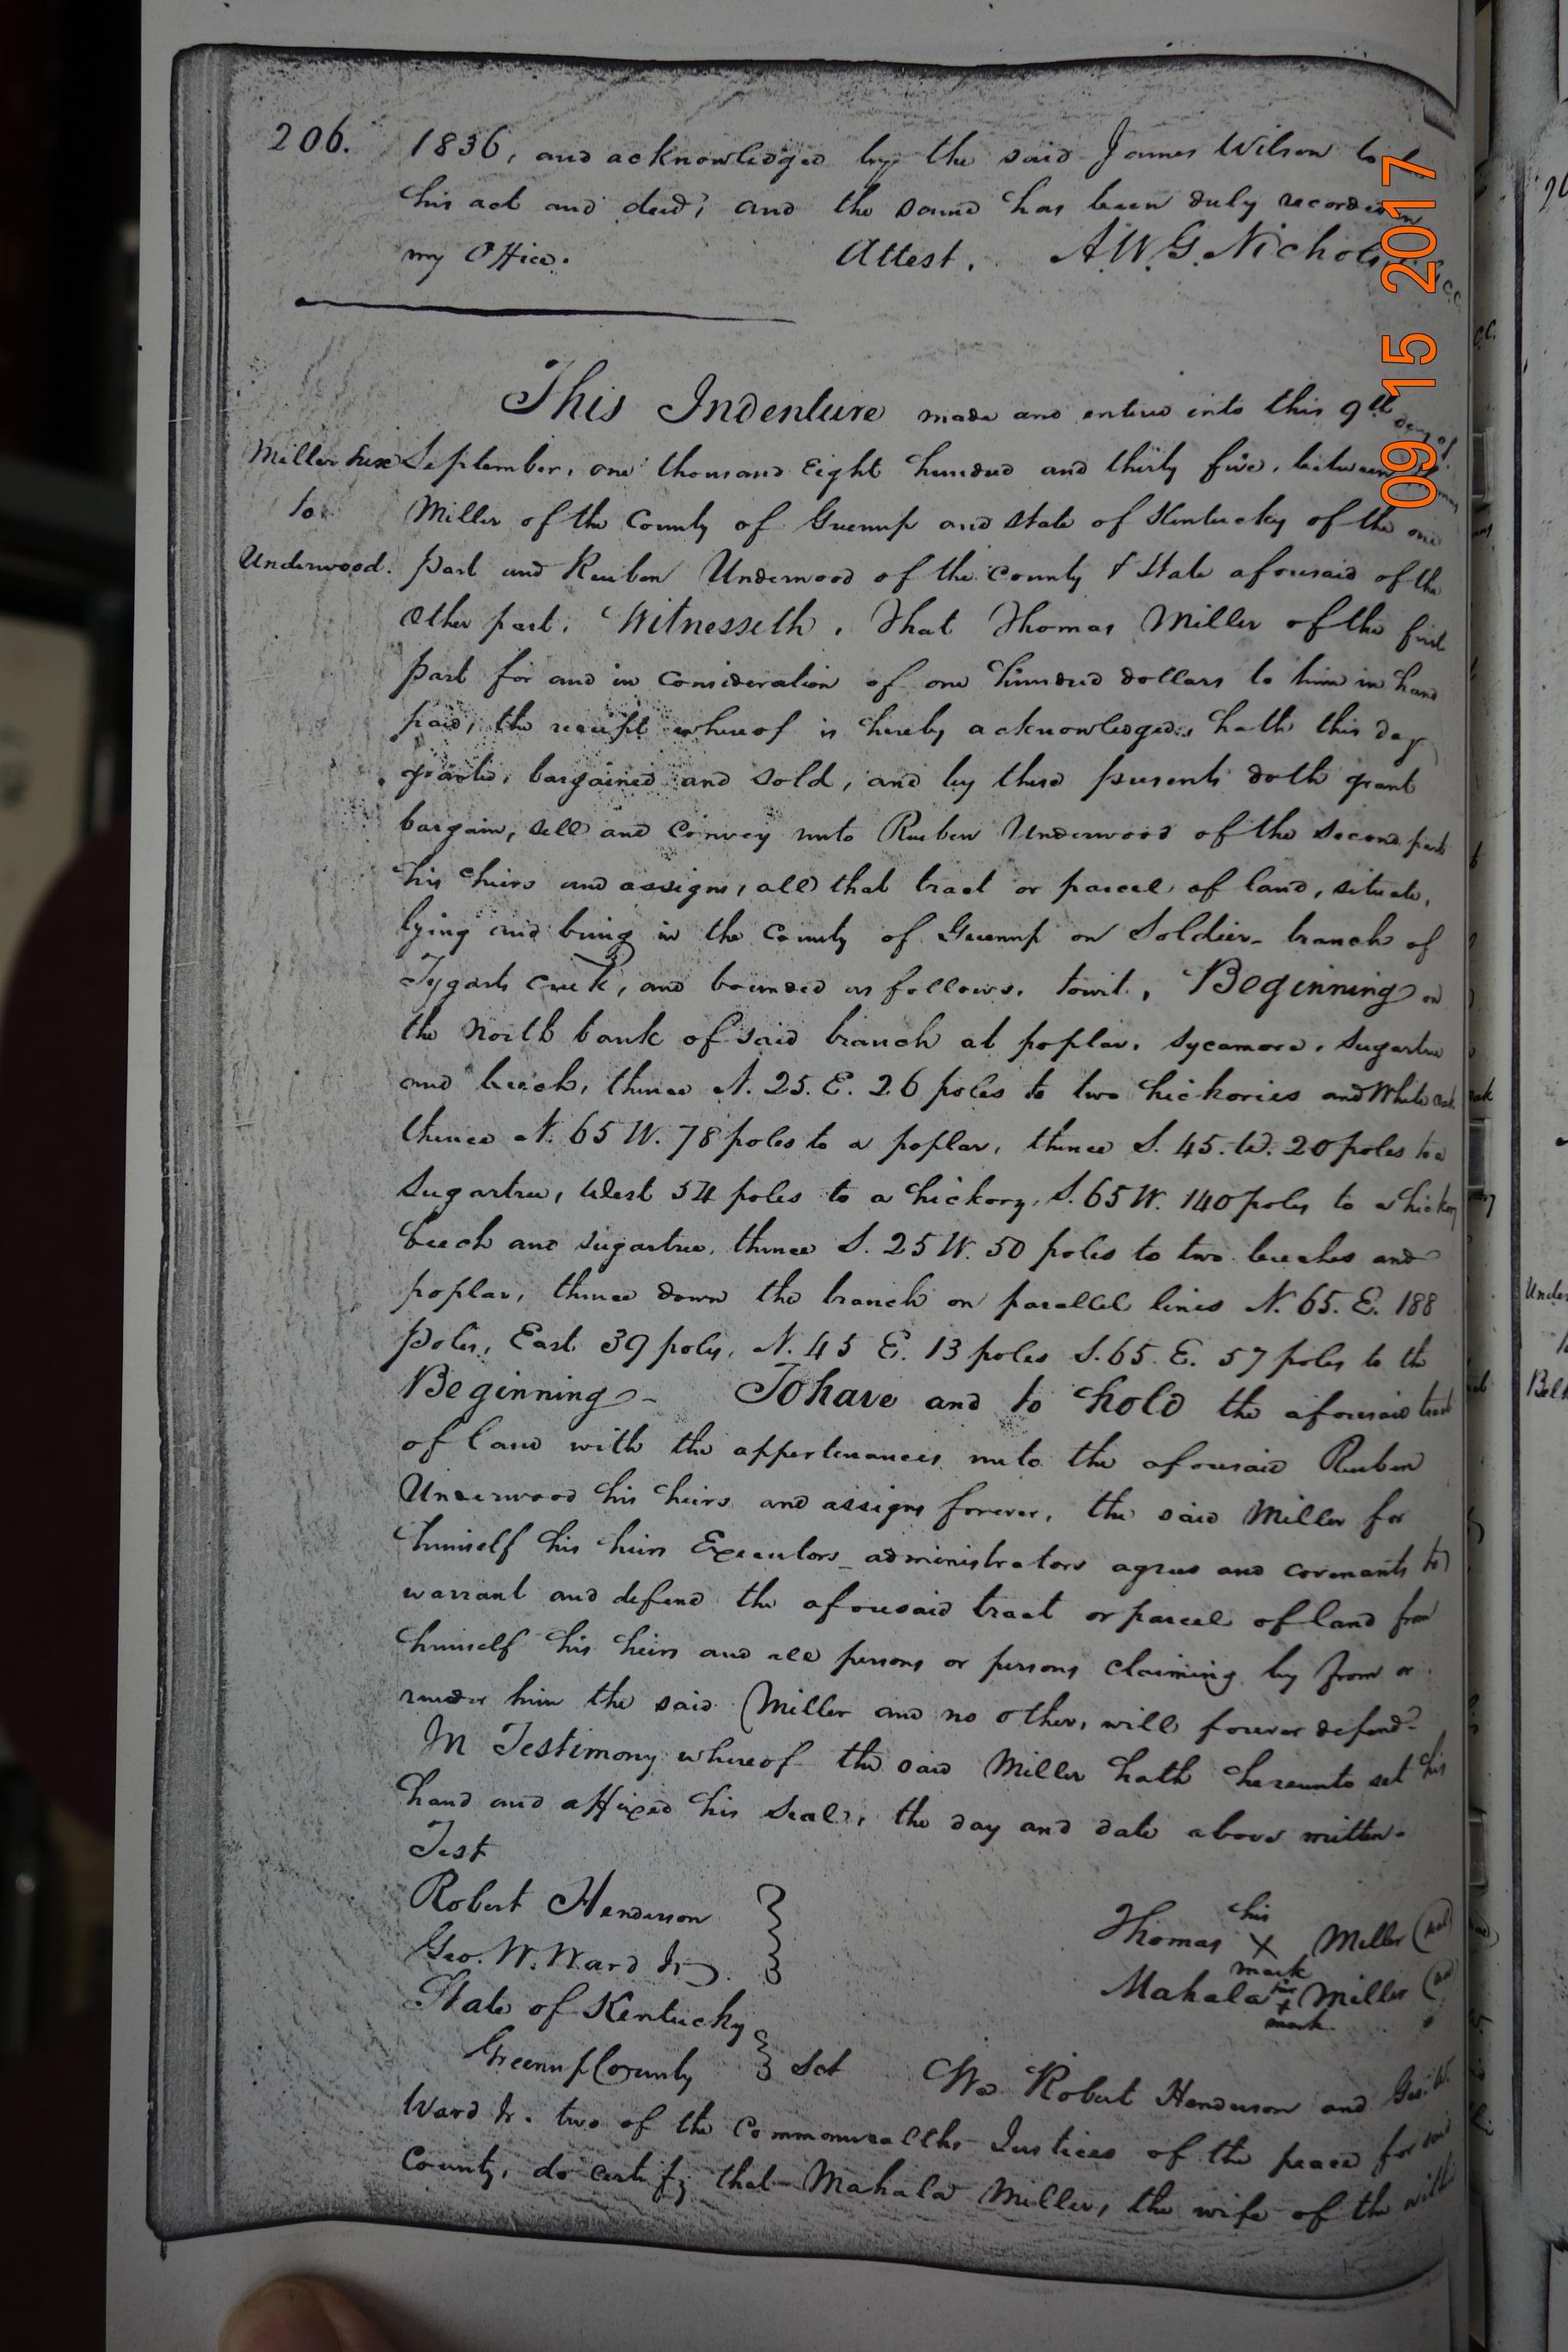 206. 1836, and acknowledged by the said James Wilson to
his act and deed, and the same has been duly recorded in
my Office. Attest. A.W.G. Nichols
This Indenture made and entered into this 9th day of
Miller &
September, one thousand Eight hundred and thirty five, between
to
Miller of the County of Greenup and State of Kentucky of the one
Underwood.
part and Reuben Underwood of the County & State aforesaid of the
Other part. Witnesseth, That Thomas Miller of the first
part for and in Consideration of one hundred dollars to him in hand
paid, the receipt whereof is hereby acknowledged, hath this day
granted, bargained and sold, and by these presents doth grant
bargain, sell and Convey unto Reuben Underwood of the Second part
his heirs and assigns, all that tract or parcel of land, situate,
lying and being in the County of Greenup on Soldier branch of
Tygarts creek, and bounded as follows. towit, Beginning on
the North bank of said branch at poplar, sycamore, sugartree
and beech, thence N. 25. E. 26 poles to two hickories and White oak
thence N. 65 W. 78 poles to a poplar, thence S. 45. W. 20 poles to a
Sugartree, West 54 poles to a hickory, S. 65 W. 140 poles to a hickory
beech and sugartree, thence S. 25 W. 50 poles to two beeches and
poplar, thence down the branch on parallel lines N. 65. E. 188
poles, East 39 poles, N. 45 E. 13 poles S. 65. E. 57 poles to the
Beginning - To have and to hold the aforesaid tract
of land with the appertenances unto the aforesaid Reuben
Underwood his heirs and assigns forever, the said Miller for
himself his heirs Executors administrators agrees and covenants to
warrant and defend the aforesaid tract or parcel of land from
himself his heirs and all persons or persons claiming by from or
under him the said Miller and no other, will forever defend
In Testimony whereof the said Miller hath hereunto set his
hand and affixed his Seal, the day and date above written.
Test
Robert Henderson
his
Thomas X Miller (seal)
mark
Geo. W. Ward Jr.
Mahala her Miller
+
mark
State of Kentucky
Greenup County } Sct We Robert Henderson and Geo. W.
Ward Jr. two of the Commonwealths Justices of the peace for said
County, do certify that Mahala Miller, the wife of the within
09 15 2017